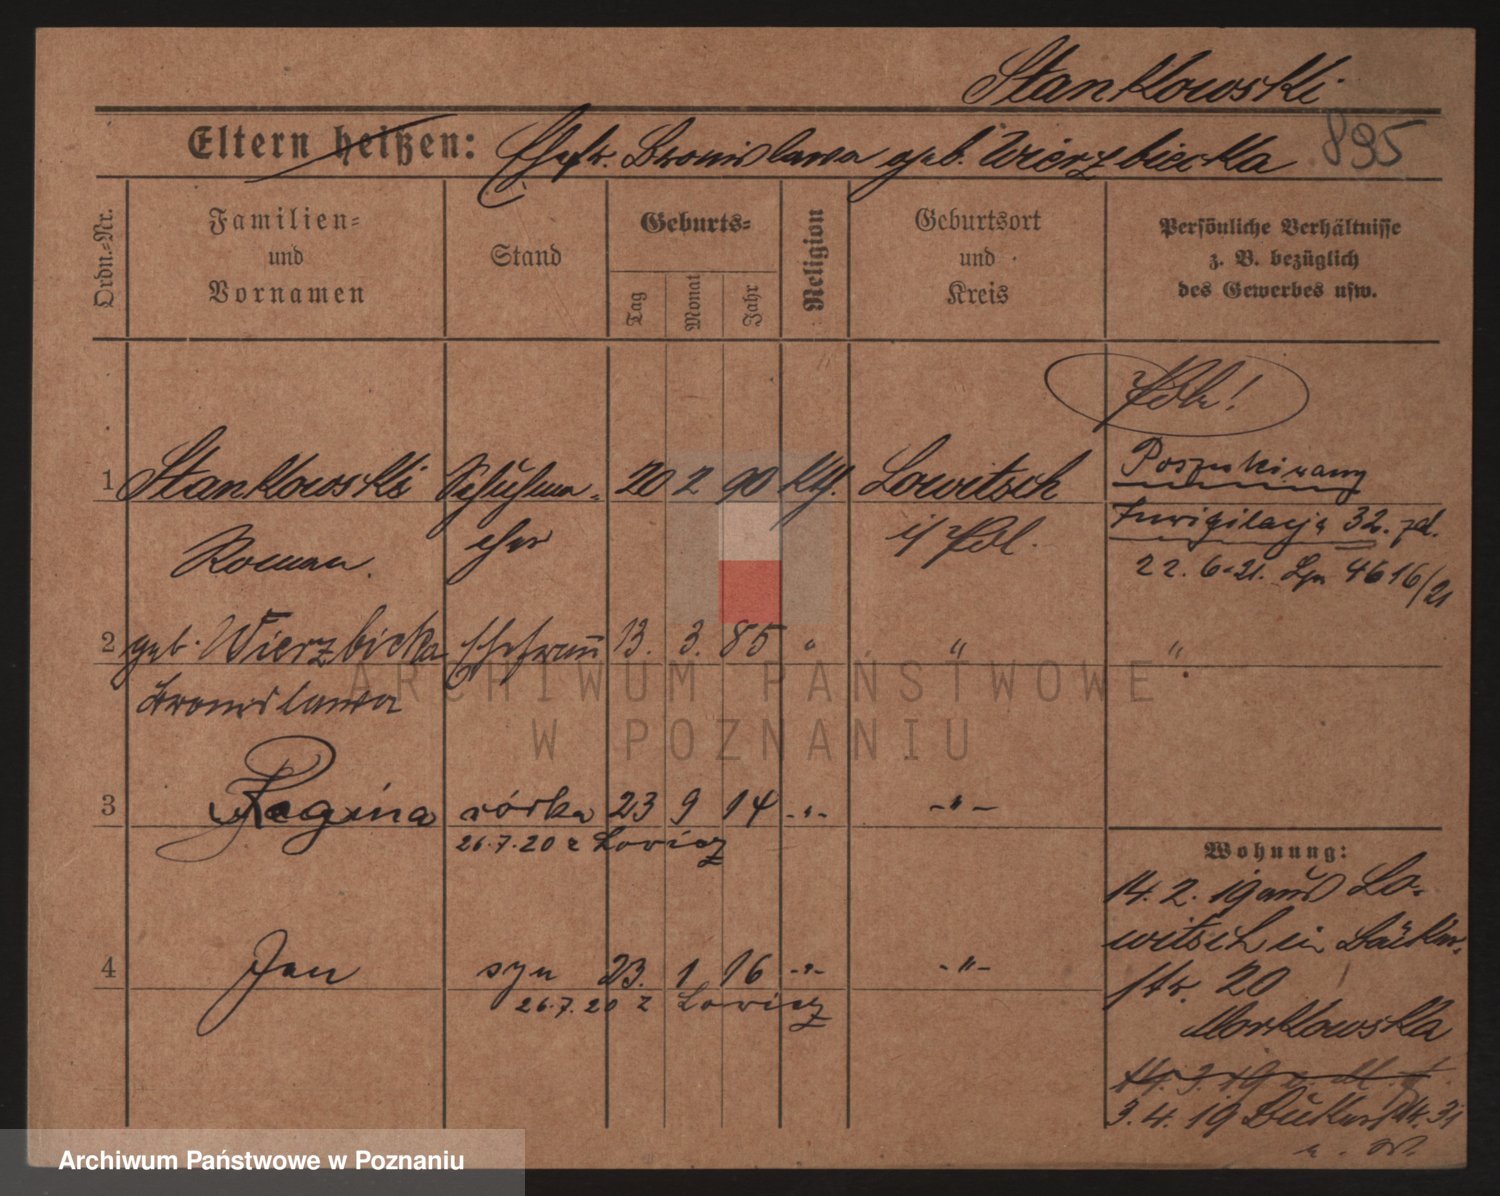 Stankowski
Eltern heißen: Ehefr. Bronislawa geb. Wierzbicka 895
Ordn.=Nr.
Familien=
und
Vornamen
Stand
Geburts=
Tag
Monat
Jahr
Religion
Geburtsort
und
Kreis
Persönliche Verhältnisse
z. B. bezüglich
des Gewerbes usw.
Pole!
1 Stankowski Schuhma- 20 2 90 kth. Lowitsch Poszukiwany
Roman. cher i/ Pol. Inwigilacja 32. zd.
22. 6. 21. 4616/21
2 geb. Wierzbicka Ehefrau 13. 3. 85 " " "
Bronislawa
3 Regina córka 23 9 14 -"- -"-
26.7.20 z Lovicz
4 Jan syn 23. 1 16 -"- -"-
26.7.20 z Lovicz
Wohnung:
14. 2. 19 aus Lo-
witsch in Bäcker-
str. 20
Morkowska
3. 4. 19 31
ARCHIWUM PAŃSTWOWE
W POZNANIU
Archiwum Państwowe w Poznaniu